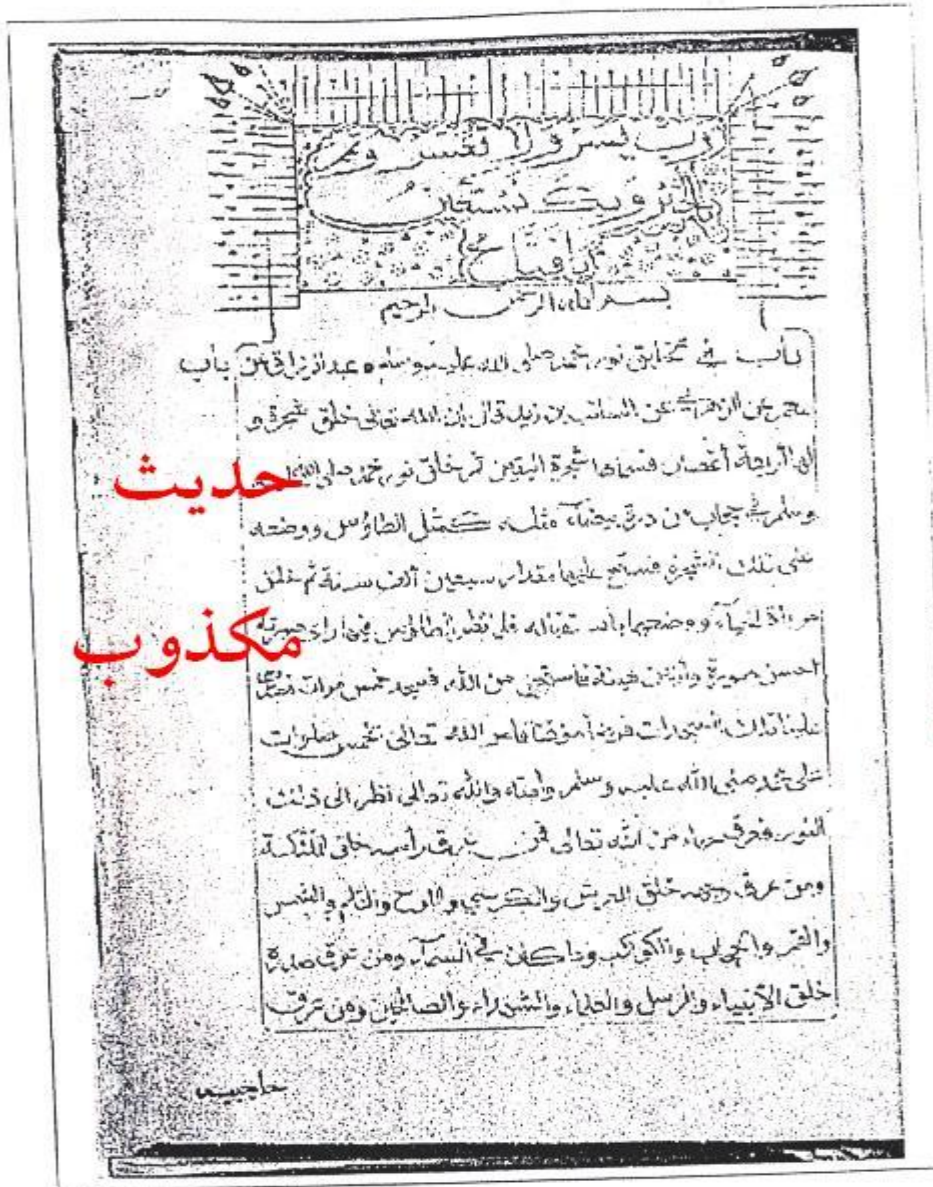 رب يسر ولا تعسر وتمم
بالخير وبك نستعين
يا فتاح
بسم الله الرحمن الرحيم
باب في تخليق نور محمد صلى الله عليه وسلم عبد الرزاق عن
باب
معمر عن الزهري عن السائب بن زيد قال إن الله تعالى خلق شجرة و
لها أربعة أغصان فسماها شجرة اليقين ثم خلق نور محمد صلى الله عليه
حديث
وسلم في حجاب من درة بيضاء مثله كمثل الطاؤس ووضعه
على تلك الشجرة فسبح عليها مقدار سبعين ألف سنة ثم خلق
مرآة الحياء ووضعها باستقباله فلما نظر الطاؤس فيها رأى صورته
مكذوب
احسن صورة وأزين هيئة فاستحيى من الله فسجد خمس مرات فصارت
علينا تلك السجدات فرضا موقتا فأمر الله تعالى بخمس صلوات
على محمد صلى الله عليه وسلم وامته والله تعالى نظر الى ذلك
النور فعرق حياء من الله تعالى فمن عرق رأسه خلق الملئكة
ومن عرق وجهه خلق العرش والكرسي واللوح والقلم والشمس
والقمر والحجاب والكوكب وما كان في السماء ومن عرق صدره
خلق الأنبياء والرسل والعلماء والشهداء والصالحين ومن عرق
حاجبيه